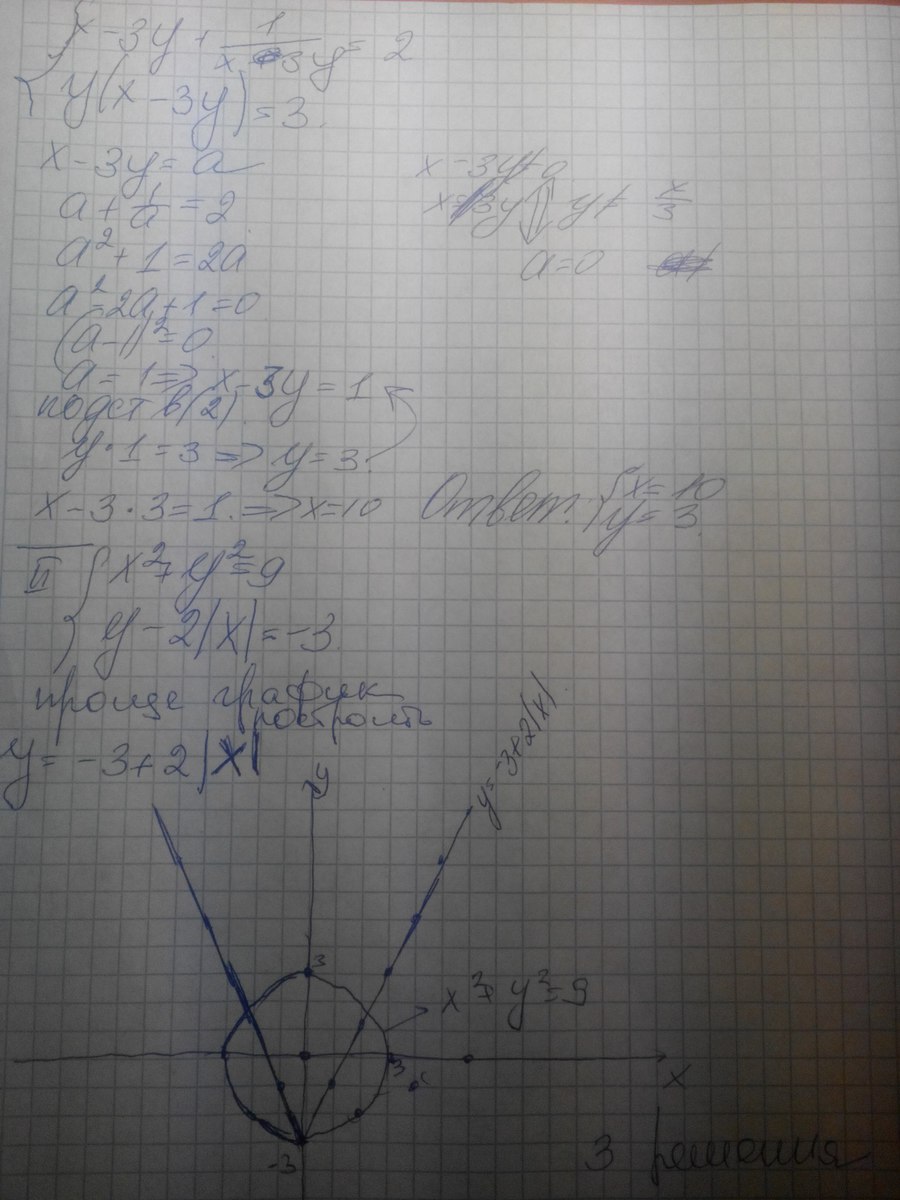 x - 3y + 1/(x - 3y) = 2
y(x - 3y) = 3.
x - 3y = a
a + 1/a = 2
a² + 1 = 2a
a² - 2a + 1 = 0
(a - 1)² = 0
a = 1 => x - 3y = 1
подст в (2)
y · 1 = 3 => y = 3.
x - 3 · 3 = 1. => x = 10
x - 3y ≠ 0
y ≠ x/3
a = 0
Ответ: { x = 10
y = 3.
II { x² + y² = 9
y - 2|x| = -3.
проще график
построить
y = -3 + 2|x|
y
y = -3 + 2|x|
3
x² + y² = 9
3
x
-3
3 решения